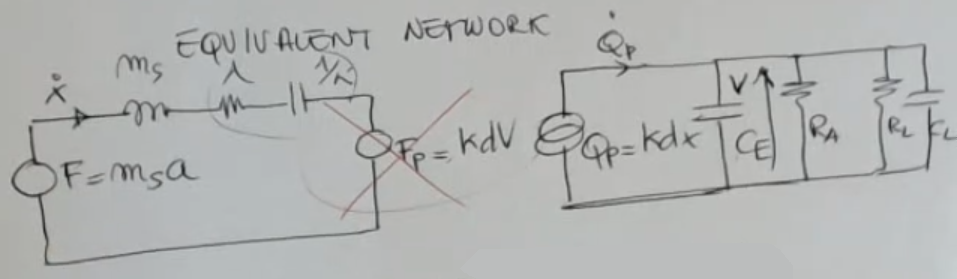 EQUIVALENT NETWORK
ẋ mₛ λ 1/k
F = mₛa
Fₚ = kdV
Q̇ₚ
Qₚ = kdx
V
C_E
R_A
R_L
C_L